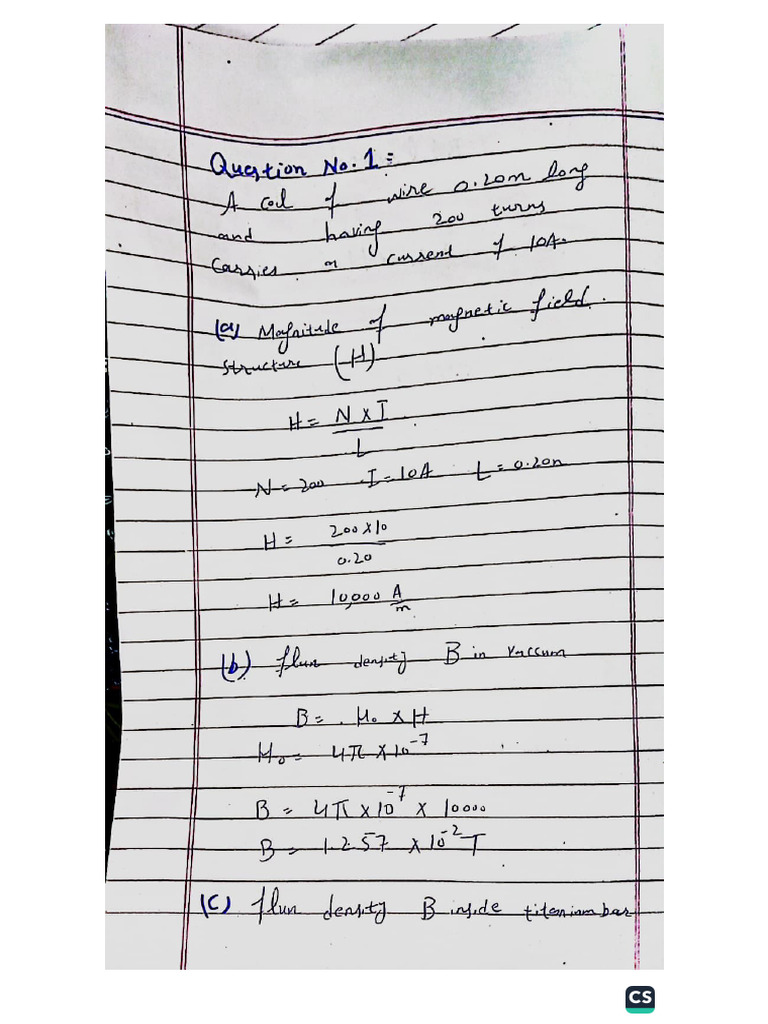 Question No. 1 :
A coil of wire 0.20m long
and having 200 turns
Carries a current of 10A.
(a) Magnitude of magnetic field
structure (H)
H = N x I
L
N = 200 I = 10A L = 0.20m
H = 200 x 10
0.20
H = 10,000 A
m
(b) flux density B in vaccum
B = . μ₀ x H
μ₀ = 4π x 10⁻⁷
B = 4π x 10⁻⁷ x 10000
B = 1.257 x 10⁻² T
(C) flux density B inside titenium bar
CS